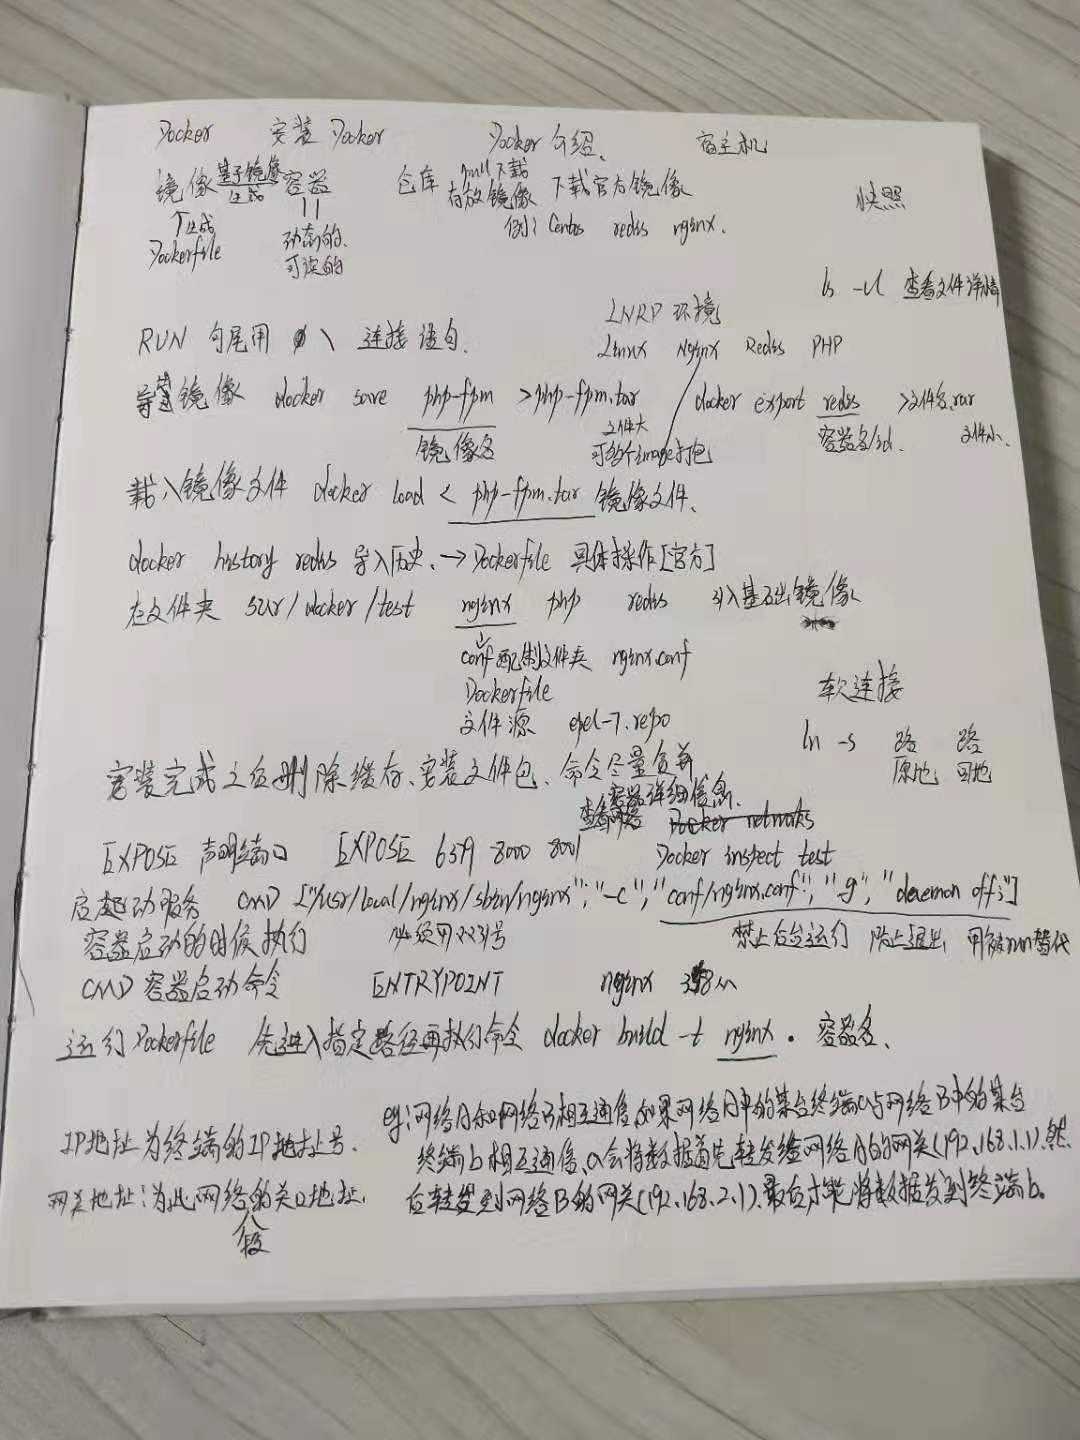 Docker 安装 Docker Docker 介绍、 宿主机
镜像 基于镜像 生成 容器 仓库 pull下载 存放镜像 下载官方镜像 快照
个生成 || 例: Centos redis nginx.
Dockerfile 动态的、
可读的
ls -l 查看文件详情
LNRP 环境
RUN 句尾用 \ 连接语句.
Linux Nginx Redis PHP
导 镜像 docker save php-fpm >php-fpm.tar docker export redis >文件名.rar
镜像名 文件大 容器名/id. 文件小、
可多个image打包
载入镜像文件 docker load < php-fpm.tar 镜像文件、
docker history redis 导入历史、→Dockerfile 具体操作[官方]
在文件夹 sur/docker/test nginx php redis 引入基础镜像
conf配制文件夹 nginx.conf
Dockerfile 软连接
文件源 epel-7.repo
ln -s 路 路
原地 回地
安装完成之后删除缓存、安装文件包、命令尽量合并
容器详细信息、
查看 Docker networks
EXPOSE 声明端口 EXPOSE 6379 8000 8001 Docker inspect test
启动服务 CMD ["/usr/local/nginx/sbin/nginx";"-c","conf/nginx.conf","-g","daemon off;"]
容器启动的时候执行 必须用双引号 禁止后台运行 防止退出 可被run替代
CMD 容器启动命令 ENTRYPOINT nginx
运行Dockerfile 先进入指定路径再执行命令 docker build -t nginx . 容器名、
eg:网络A和网络B相互通信,如果网络A中的某台终端a与网络B中的某台
IP地址为终端的IP地址号. 终端b相互通信、a会将数据首先转发给网络A的网关(192.168.1.1).然
网关地址:为此网络的关口地址. 后转发到网络B的网关(192.168.2.1).最后才能将数据发到终端b。
段